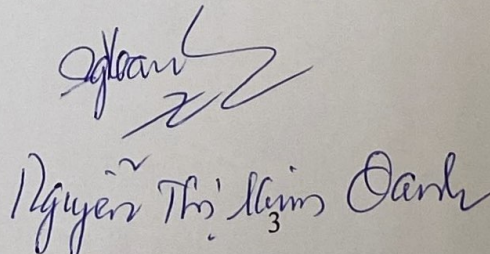 Nguyễn Thị Kim Oanh
3